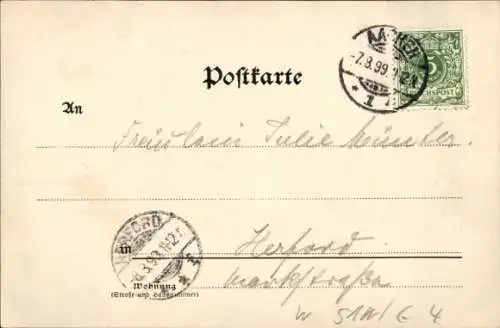 AACHEN
-7.8.99.
* 1
REICHSPOST
Postkarte
An
Fräulein Julie Münter.
HERFORD
8.8.99.
in
Herford
Wohnung
Marktstraße
(Straße und Hausnummer)